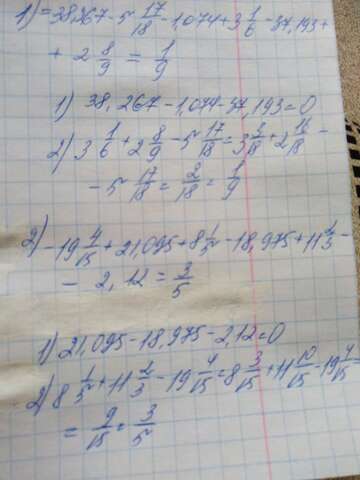 1) = 38,267 - 5 17/18 - 1,074 + 3 1/6 - 37,193 +
+ 2 8/9 = 1/9
1) 38,267 - 1,074 - 37,193 = 0
2) 3 1/6 + 2 8/9 - 5 17/18 = 3 3/18 + 2 16/18 -
- 5 17/18 = 2/18 = 1/9
2) -19 4/15 + 21,095 + 8 1/5 - 18,975 + 11 2/3 -
- 2,12 = 3/5
1) 21,095 - 18,975 - 2,12 = 0
2) 8 1/5 + 11 2/3 - 19 4/15 = 8 3/15 + 11 10/15 - 19 4/15
= 9/15 = 3/5